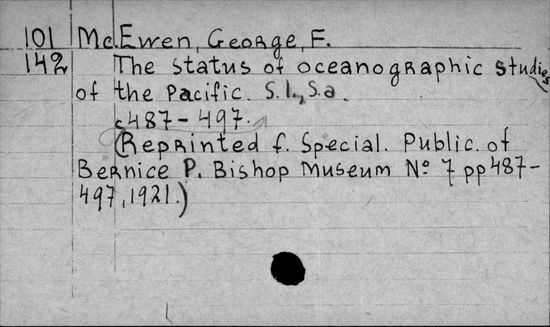 101 Mc.Ewen, George, F.
142 The status of oceanographic studies
of the Pacific. S.l., s.a.
c487-497.
(Reprinted f. Special. Public. of
Bernice P. Bishop Museum No 7 pp 487-
497, 1921.)